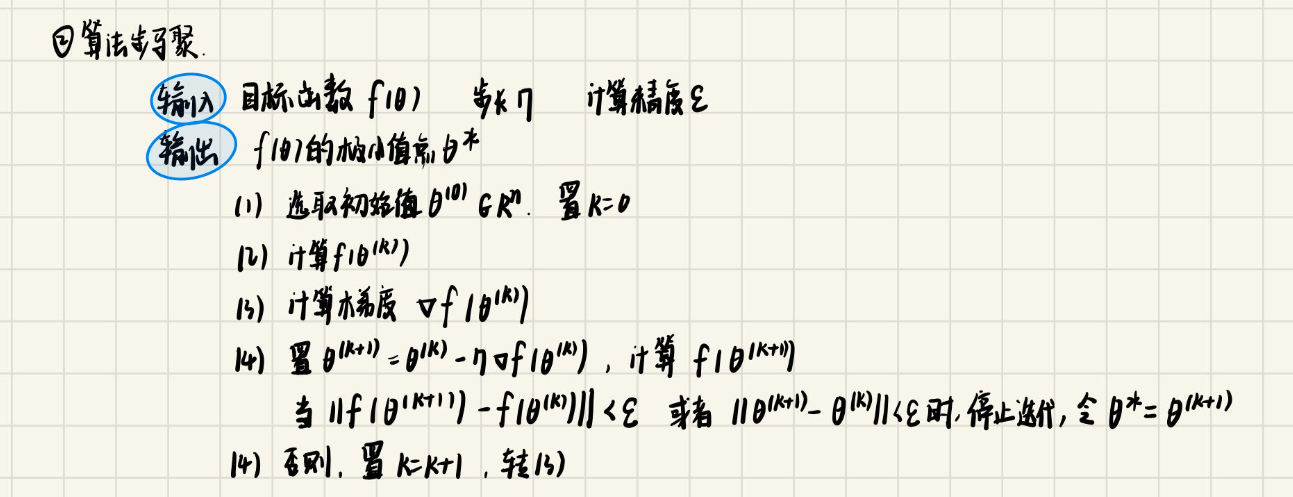 ② 算法步骤.
输入 目标函数 f(θ) 步长 η 计算精度 ε
输出 f(θ)的极小值点 θ*
(1) 选取初始值 θ⁽⁰⁾ ∈ Rⁿ. 置 k=0
(2) 计算 f(θ⁽ᵏ⁾)
(3) 计算梯度 ∇f(θ⁽ᵏ⁾)
(4) 置 θ⁽ᵏ⁺¹⁾ = θ⁽ᵏ⁾ - η∇f(θ⁽ᵏ⁾), 计算 f(θ⁽ᵏ⁺¹⁾)
当 ||f(θ⁽ᵏ⁺¹⁾) - f(θ⁽ᵏ⁾)|| < ε 或者 ||θ⁽ᵏ⁺¹⁾ - θ⁽ᵏ⁾|| < ε 时, 停止迭代, 令 θ* = θ⁽ᵏ⁺¹⁾
(4) 否则, 置 k=k+1, 转(3)